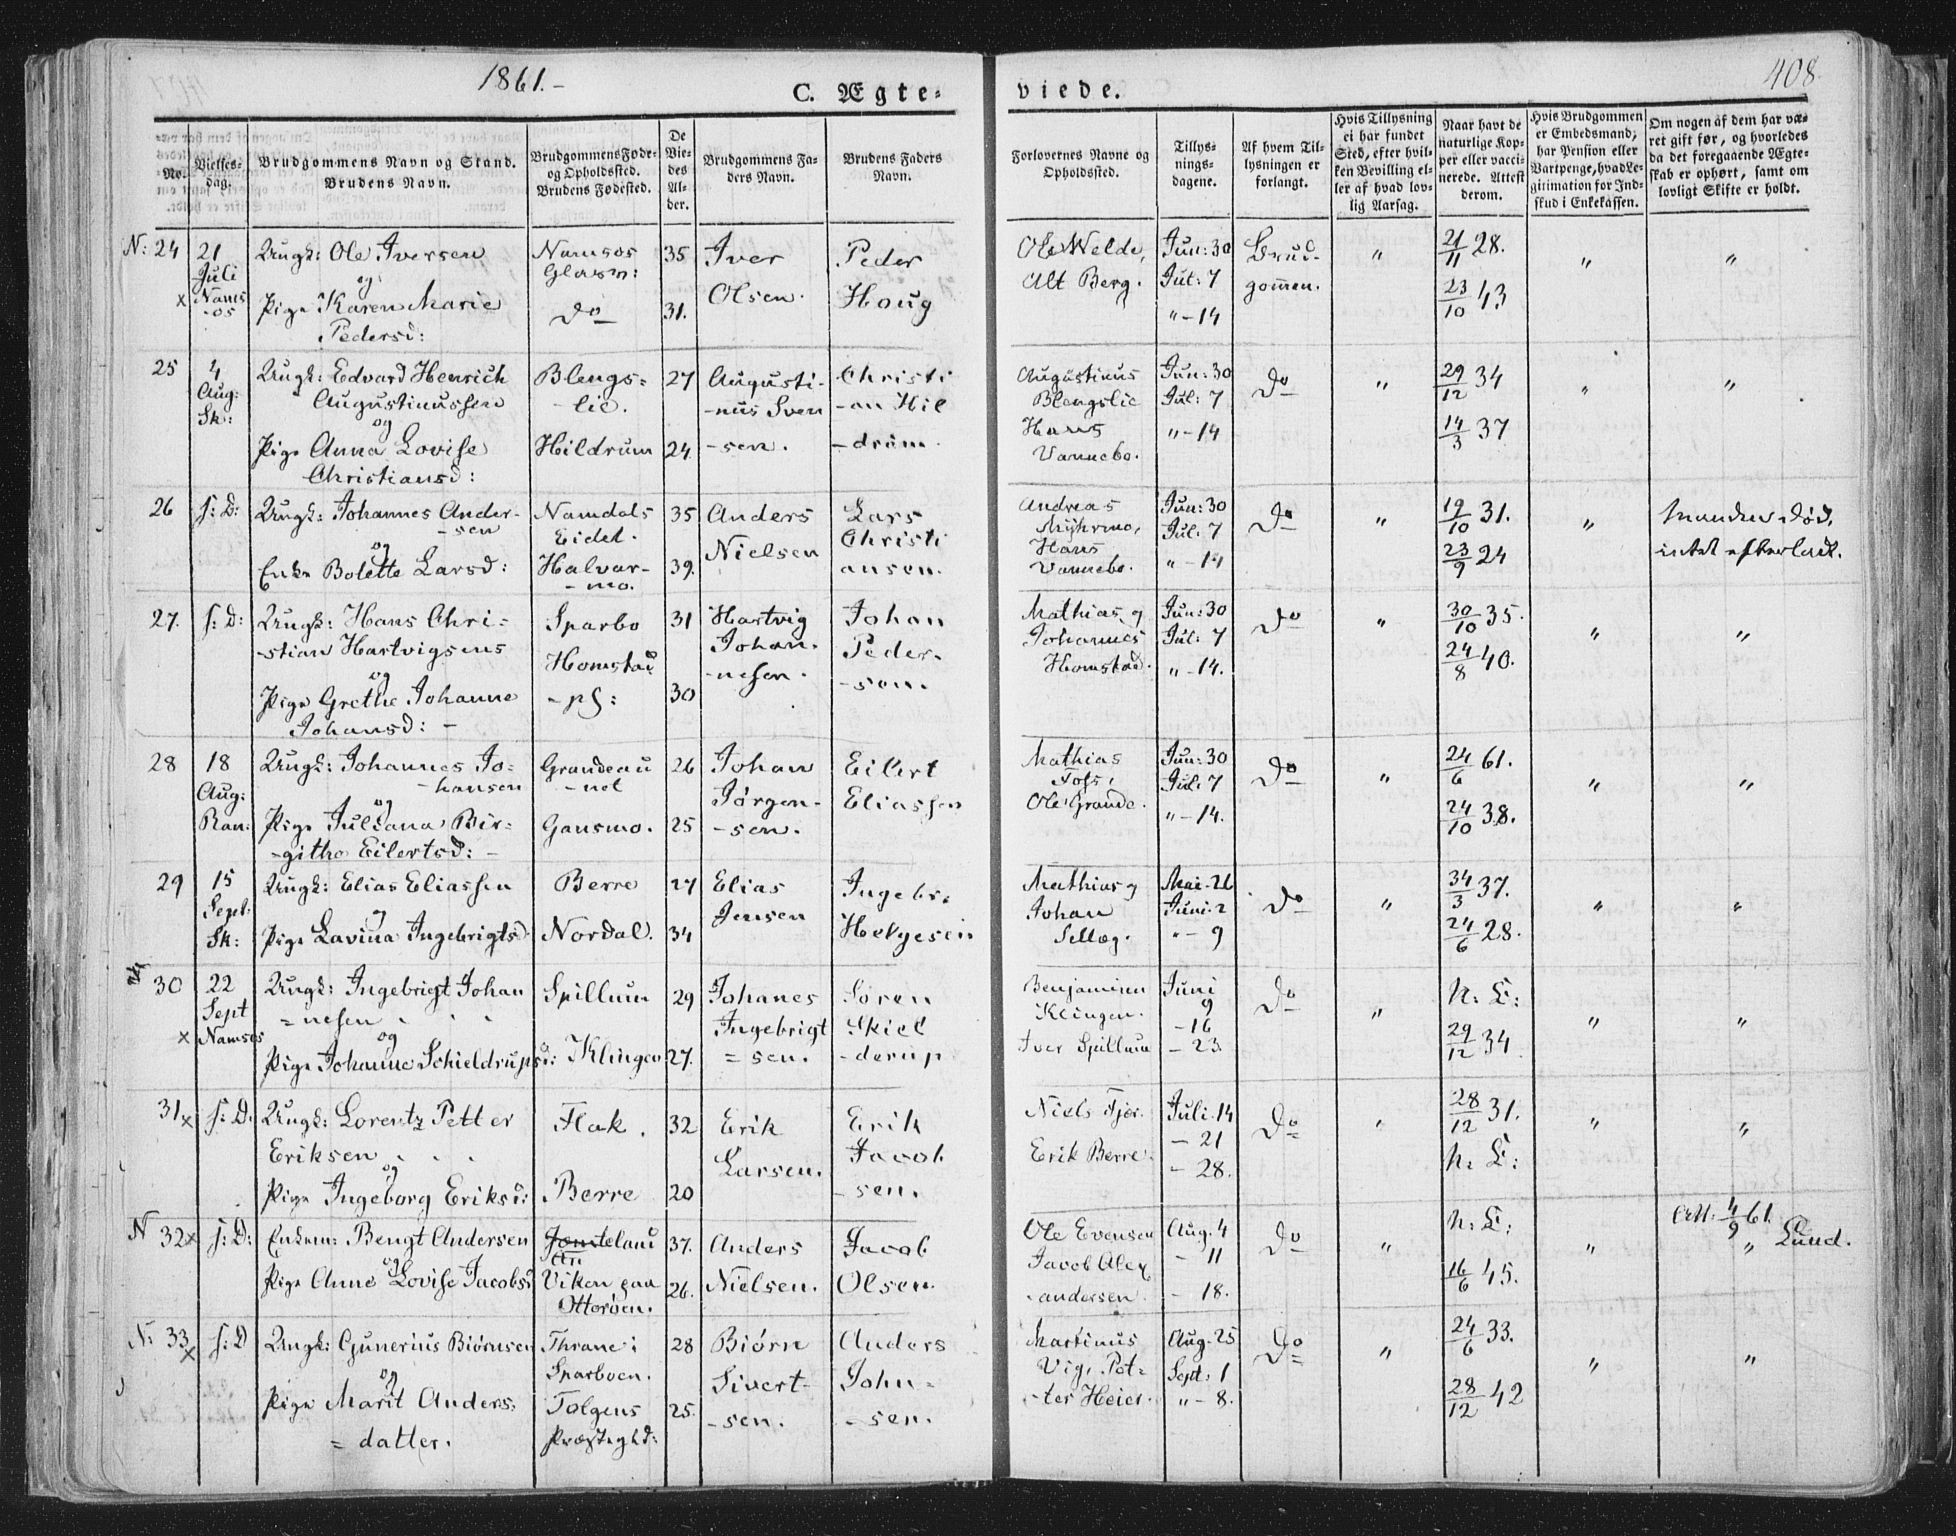 1861.-
C. Ægte-
viede.
408
No.
Vielses-
dag.
Brudgommens Navn og Stand.
Brudens Navn.
Brudgommens Føde-
og Opholdssted.
Brudens Fødested.
De
Vie-
des
Al-
der.
Brudgommens Fa-
ders Navn.
Brudens Faders
Navn.
Forlovernes Navne og
Opholdssted.
Tillys-
nings-
dagene.
Af hvem Til-
lysningen er
forlangt.
Hvis Tillysning
ei har fundet
Sted, efter hvil-
ken Bevilling el-
ler af hvad lov-
lig Aarsag.
Naar havt de
naturlige Kop-
per eller vacci-
nerede. Attest
derom.
Hvis Brudgommen
er Embedsmand,
har Pension eller
Vartpenge, hvad Le-
gitimation for Ind-
skud i Enkekassen.
Om nogen af dem har væ-
ret gift før, og hvorledes
da det foregaaende Ægte-
skab er ophørt, samt om
lovligt Skifte er holdt.
N: 24
21
Juli
x Nams
-os
Ungk: Ole Iversen
og
Pige Karen Marie
Pedersd:
Namsos
do
35
31.
Iver
Olsen.
Peder
Houg
Ole Welde,
Alt Berg.
Jun: 30
Jul: 7
" - 14
Brud-
gommen.
"
21/11 28.
23/10 43
"
"
25
4
Aug:
Sk:
Ungk: Edvard Henrich
Augustinussen
og
Pige Anna Lovise
Christiansd:
Blengs-
-lie.
Hildrum
27
24.
Augusti-
-nus Sven
-sen.
Christi
-an Hil
-drum.
Augustinus
Blengslie
Hans
Vannebo.
Jun: 30
Jul: 7
" - 14
Do
"
29/12 34
14/3 37
"
"
26
s: D:
Ungk: Johannes Ander-
-sen
og
Enke Bolette Larsd:
Namdals
Eidet.
Halvar-
-mo.
35
39.
Anders
Nielsen
Lars
Christi
ansen.
Andreas
Myhrmo,
Hans
Vannebo.
Jun: 30
Jul: 7
" - 14
Do
"
19/10 31.
23/9 24
"
Manden død,
intet efterladt.
27.
s: D:
Ungk: Hans Chri-
-stian Hartvigsens
og
Pige Grethe Johanne
Johansd: -
Sparbo
Homstad
31
30
Hartvig
Johan-
-nesen.
Johan
Peder-
-sen.
Mathias og
Johannes
Homstad.
Jun: 30
Jul: 7
" - 14.
Do
"
30/10 35.
24/8 40.
"
"
28
18
Aug:
Ran:
Ungk: Johannes Jo-
-hansen
og
Pige Juliana Bir-
-githa Eilertsd: -
Grandeau
-net
Gansmo.
26
25
Johan
Jörgen-
-sen.
Eilert
Eliassen
Mathias
Foss,
Ole Grande.
Jun: 30
Jul: 7
" - 14.
Do
"
24/6 61.
24/10 38.
"
"
29
15
Sept:
Sk:
Ungk: Elias Eliassen
og
Pige Lavina Ingebrigtsd.
Berre
Nordal.
27
34
Elias
Jensen
Ingebr.
Helgesen
Mathias og
Johan
Sellæg.
Mai - 26
Juni - 2
" - 9
Do
"
34/3 37.
24/6 28.
"
"
30
22
Sept
x Namsos
Ungk: Ingebrigt Johan
=nesen
og
Pige Johanne Schieldrupsd:
Spillum
Klingen
29
27.
Johanes
Ingebrigt
=sen.
Sören
Skiel
-derup
Benjaminn
Klingen.
Iver Spillum
Juni
9
- 16
- 23.
Do
"
N: L:
29/12 34
"
"
31 x
s: D.
Ungk: Lorentz Petter
Eriksen
og
Pige Ingeborg Eriksd:
Flak.
Berre
32
20
Erik
Larsen.
Erik
Jacob
-sen.
Niels Fjær.
Erik Berre.
Juli - 14
- 21
- 28.
Do
"
28/12 31.
N: L:
"
"
N 32 x
s: D:
Enkem: Bengt Andersen
og
Pige Anne Lovise Jacobsd
Jemteland
Viken paa
Otterøen.
37.
26.
Anders
Nielsen.
Jacob
Olsen.
Ole Evensen
Jacob Alex
-andersen.
Aug. 4
- 11
- 18.
Do
"
N: L:
16/6 45.
"
Att. 4/9 61.
" Lund.
N: 33 x
s: D
Ungk: Gunerius Biørnsen
og
Pige Marit Anders
=datter.
Thrane i
Sparboen.
Tolgens
Præstegjd:
28
25.
Biørn
Sivert-
-sen.
Anders
John-
-sen.
Martinus
Vig, Pet-
-ter Heier.
Aug. 25
Sept. 1
" - 8.
Do
"
24/6 33.
28/12 42
"
"